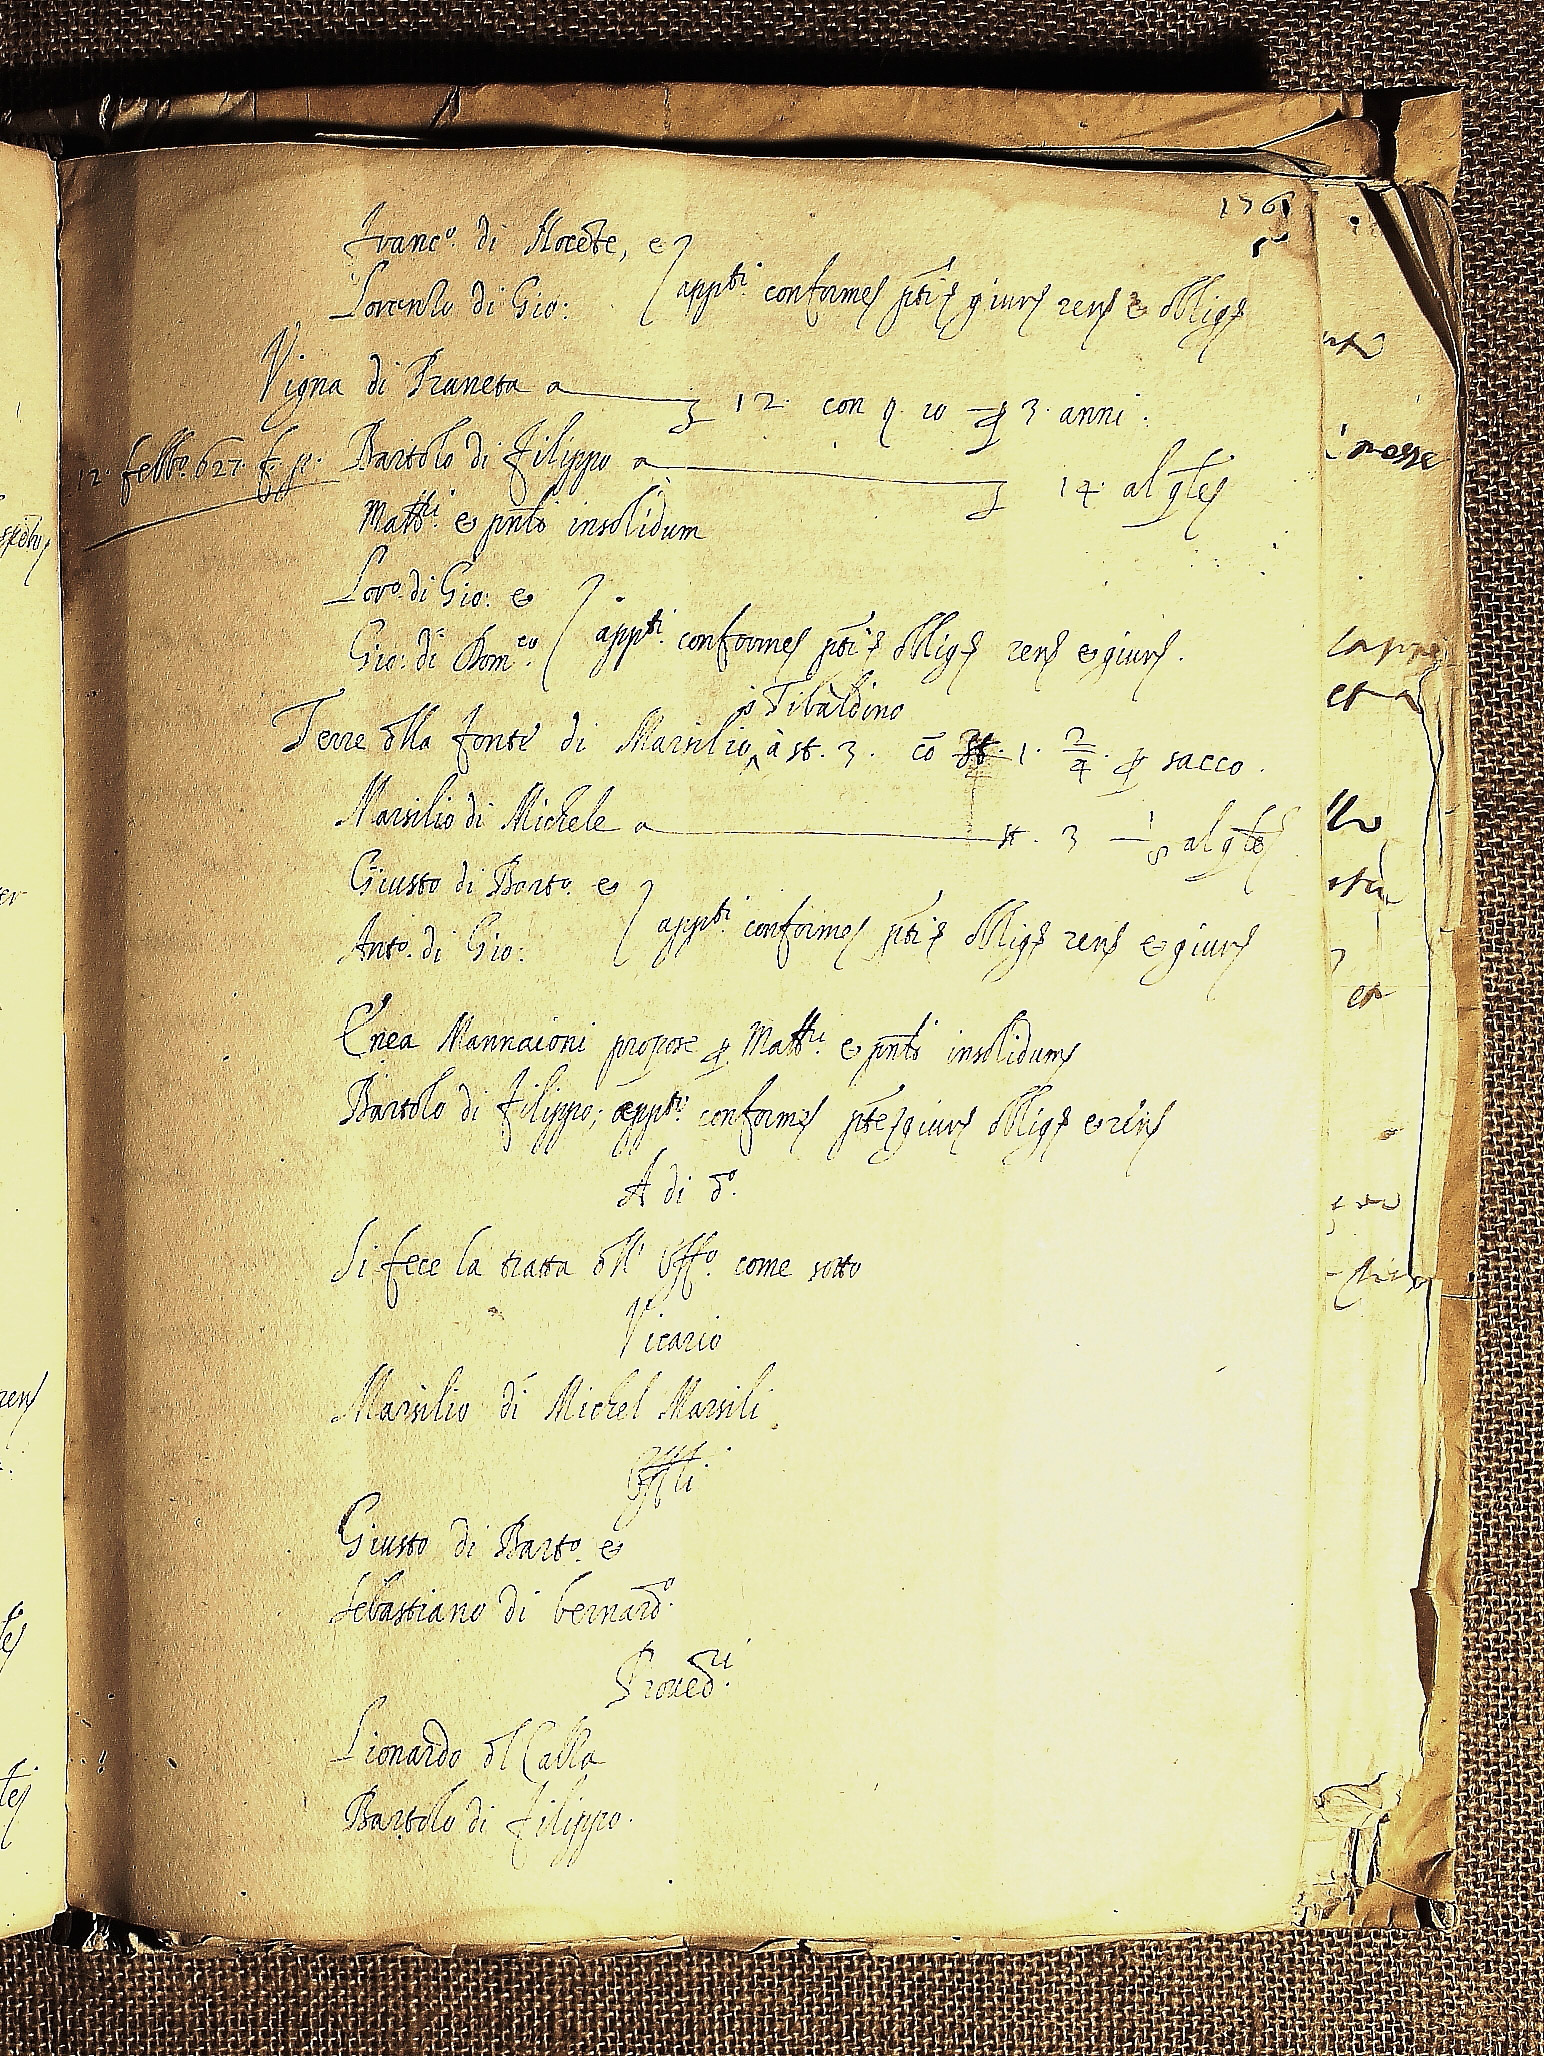 176
Franc.o di Nocente, e
Lorenzo di Gio: appti conformes giurs rens & obligs
Vigna di Pruneta a 12 con 10 3 anni.
12 febb.o 627 Bartolo di Filippo a 14 al
Matt.ri & pnto insolidum
Lor.o di Gio: &
Gio: di Dom.co appti conformes obligs rens & giurs.
Tibaldino
Terre dlla fonte di Marsilio, à st. 3. cō 1. 2/4 sacco.
Marsilio di Michele a st. 3 1/8 al
Giusto di Bart.o &
Ant.o di Gio: appti conformes obligs rens & giurs
Enea Mannaioni propose Matt.ri & pnto insolidum
Bartolo di Filippo; appto conformes giurs obligs & rens
A di d.o
Si fece la tratta dll' Off.o come sotto
Vicario
Marsilio di Michel Marsili
Offli.
Giusto di Bart.o &
Sebastiano di bernard.o
Proued.ri
Lionardo dl Calla
Bartolo di Filippo.